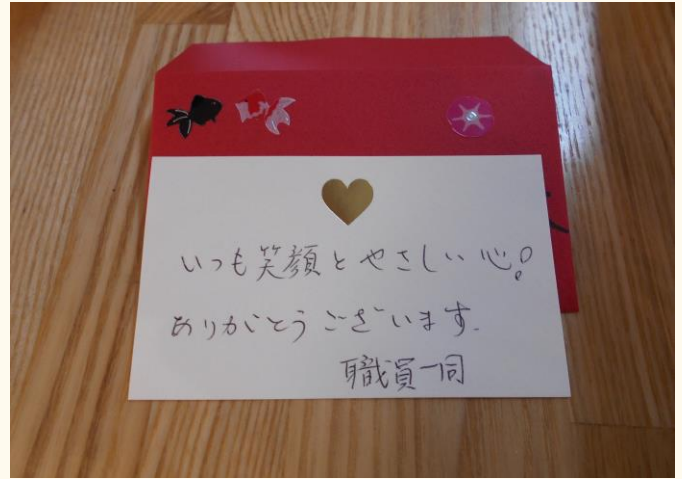 いつも笑顔とやさしい心!
ありがとうございます.
職員一同